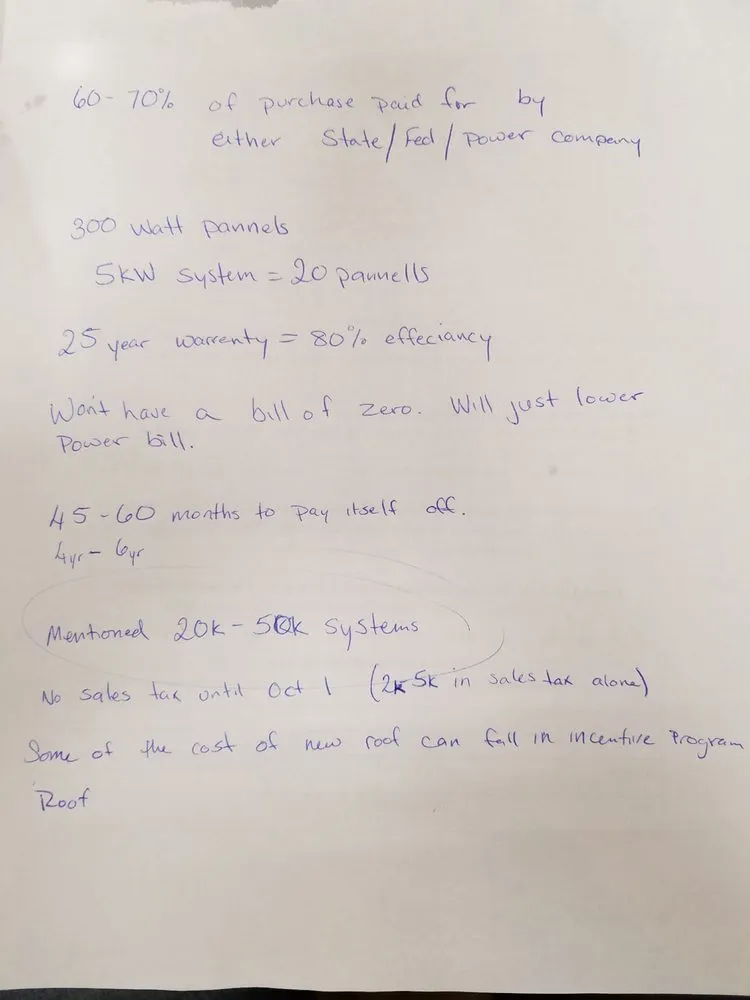 60-70% of purchase paid for by
either State/Fed/Power company
300 Watt pannels
5KW system = 20 pannells
25 year warrenty = 80% effeciancy
Won't have a bill of zero. Will just lower
Power bill.
45-60 months to pay itself off.
4yr - 6yr
Mentioned 20k - 50k systems
No sales tax until Oct 1 (2k 5k in sales tax alone)
Some of the cost of new roof can fall in incentive Program
Roof